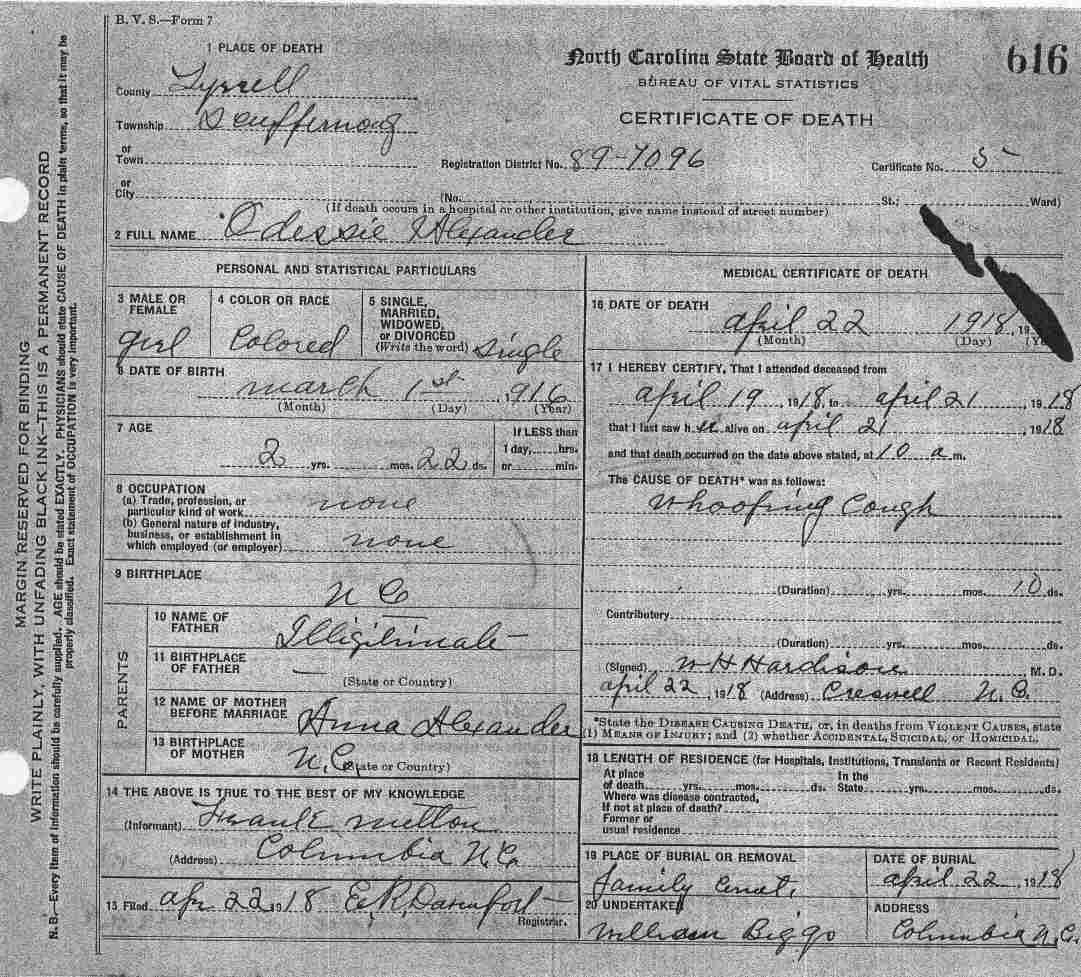 B. V. S.—Form 7
1 PLACE OF DEATH
North Carolina State Board of Health
616
BUREAU OF VITAL STATISTICS
CERTIFICATE OF DEATH
County Tyrrell
Township Scuppernong
or
Town
Registration District No. 89-7096
Certificate No. 5
or
City
(No.
St.;
Ward)
(If death occurs in a hospital or other institution, give name instead of street number)
2 FULL NAME Odessie Alexander
PERSONAL AND STATISTICAL PARTICULARS
3 MALE OR FEMALE
girl
4 COLOR OR RACE
Colored
5 SINGLE,
MARRIED,
WIDOWED,
or DIVORCED
(Write the word) single
6 DATE OF BIRTH
march 1st , 1916
(Month) (Day) (Year)
7 AGE
2 yrs. mos. 22 ds.
If LESS than
1 day, hrs.
or min.
8 OCCUPATION
(a) Trade, profession, or
particular kind of work none
(b) General nature of industry,
business, or establishment in
which employed (or employer) none
9 BIRTHPLACE
N C
PARENTS
10 NAME OF
FATHER Illigitimate
11 BIRTHPLACE
OF FATHER —
(State or Country)
12 NAME OF MOTHER
BEFORE MARRIAGE Anna Alexander
13 BIRTHPLACE
OF MOTHER N.C.
(State or Country)
14 THE ABOVE IS TRUE TO THE BEST OF MY KNOWLEDGE
(Informant) Frank
(Address) Columbia N.C.
15 Filed Apr 22 1918 E.R. Davenport
Registrar.
MEDICAL CERTIFICATE OF DEATH
16 DATE OF DEATH
april 22 1918 , 19
(Month) (Day)
17 I HEREBY CERTIFY, That I attended deceased from
april 19 , 1918 to april 21 , 1918
that I last saw h alive on april 21 , 1918
and that death occurred on the date above stated, at 10 a m.
The CAUSE OF DEATH* was as follows:
Whooping Cough
(Duration) yrs. mos. 10 ds.
Contributory
(Duration) yrs. mos. ds.
(Signed) W H Hardison M.D.
april 22 , 1918 (Address) Creswell N.C.
*State the DISEASE CAUSING DEATH, or, in deaths from VIOLENT CAUSES, state
(1) MEANS OF INJURY; and (2) whether ACCIDENTAL, SUICIDAL, or HOMICIDAL.
18 LENGTH OF RESIDENCE (for Hospitals, Institutions, Transients or Recent Residents)
At place
of death yrs. mos. ds.
In the
State yrs. mos. ds.
Where was disease contracted,
If not at place of death?
Former or
usual residence
19 PLACE OF BURIAL OR REMOVAL
family
DATE OF BURIAL
april 22 , 1918
20 UNDERTAKER
William Biggs
ADDRESS
Columbia N.C.
MARGIN RESERVED FOR BINDING
WRITE PLAINLY, WITH UNFADING BLACK INK—THIS IS A PERMANENT RECORD
N. B.—Every item of information should be carefully supplied. AGE should be stated EXACTLY. PHYSICIANS should state CAUSE OF DEATH in plain terms, so that it may be
properly classified. Exact statement of OCCUPATION is very important.